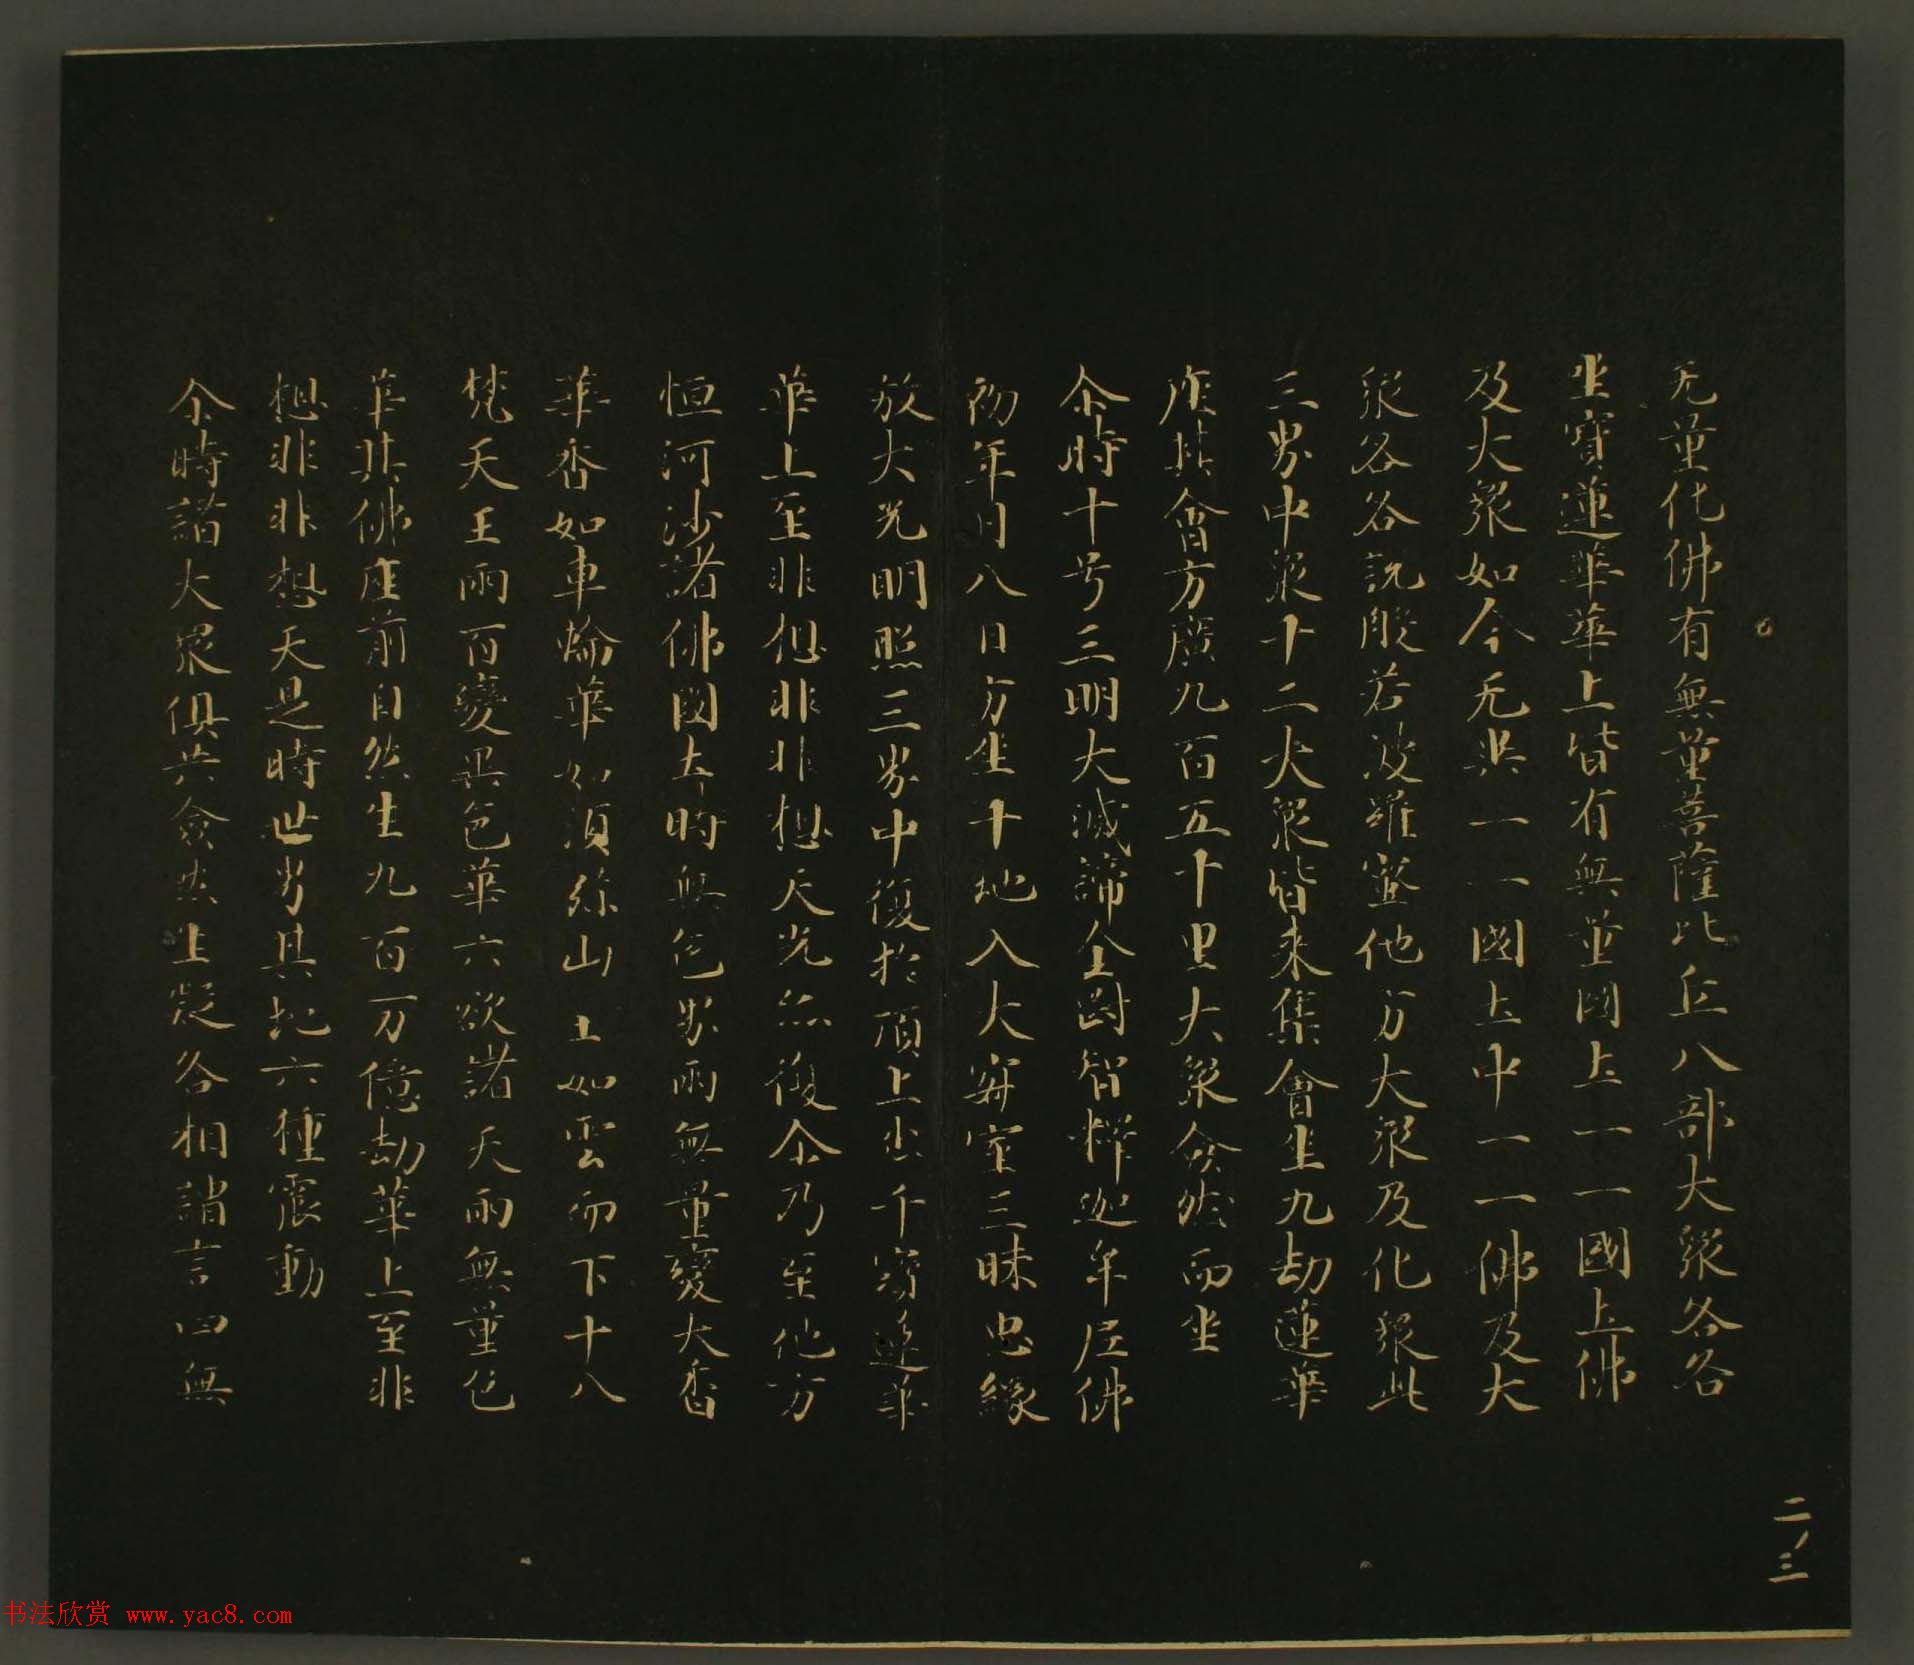 无量化佛有無量菩薩比丘八部大眾各各
坐寶蓮華華上皆有無量國土一一國土佛
及大眾如今无異一一國土中一一佛及大
眾各各說般若波羅蜜他方大眾及化眾此
三界中眾十二大眾皆來集會坐九劫蓮華
座其會方廣九百五十里大眾僉然而坐
尒時十号三明大滅諦金剛智釋迦牟尼佛
初年月八日方坐十地入大寂室三昧思緣
放大光明照三界中復於頂上出千寶蓮華
華上至非想非非想天光亦復尒乃至他方
恒河沙諸佛國土時無色界雨無量變大香
華香如車輪華如須弥山王如雲而下十八
梵天王雨百變異色華六欲諸天雨無量色
華其佛座前自然生九百万億劫華上至非
想非非想天是時世界其地六種震動
尒時諸大眾俱共僉然生疑各相謂言四無
二ノ三
书法欣赏 www.yac8.com